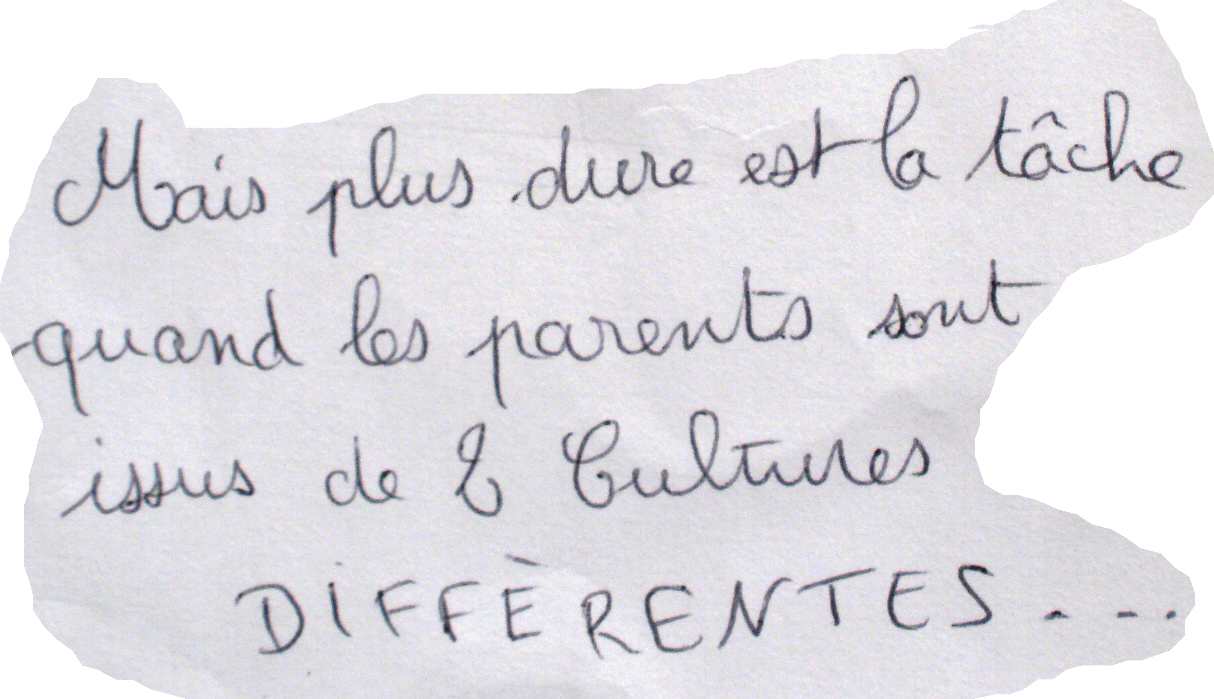 Mais plus dure est la tâche
quand les parents sont
issus de 2 Cultures
DIFFÈRENTES....